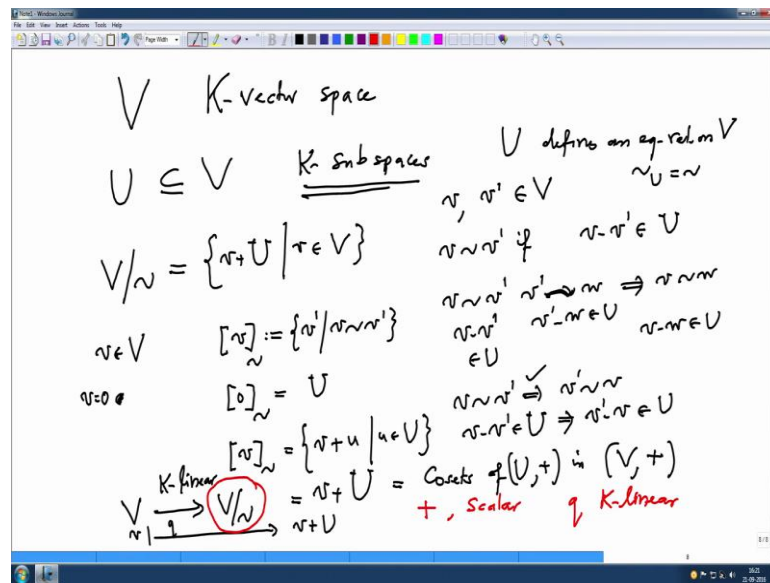 Note1 - Windows Journal
File Edit View Insert Actions Tools Help
Page Width
B I
V K-vector space
U ⊆ V K-subspaces
U defines an eq. rel. on V
~_U = ~
v, v' ∈ V
V/~ = {v+U | v ∈ V}
v~v' if v-v' ∈ U
v~v' v'~w ⇒ v~w
v-v' ∈ U v'-w ∈ U v-w ∈ U
v∈V [v]_~ := {v' | v~v'}
v=0 [0]_~ = U
v~v' ⇒ v'~v ✓
v-v' ∈ U ⇒ v'-v ∈ U
[v]_~ = {v+u | u∈U}
= v+U = Cosets of (U,+) in (V,+)
K-linear
V →q V/~
v ↦ v+U
+, Scalar q K-linear
8/8
8
16:21
21-09-2018